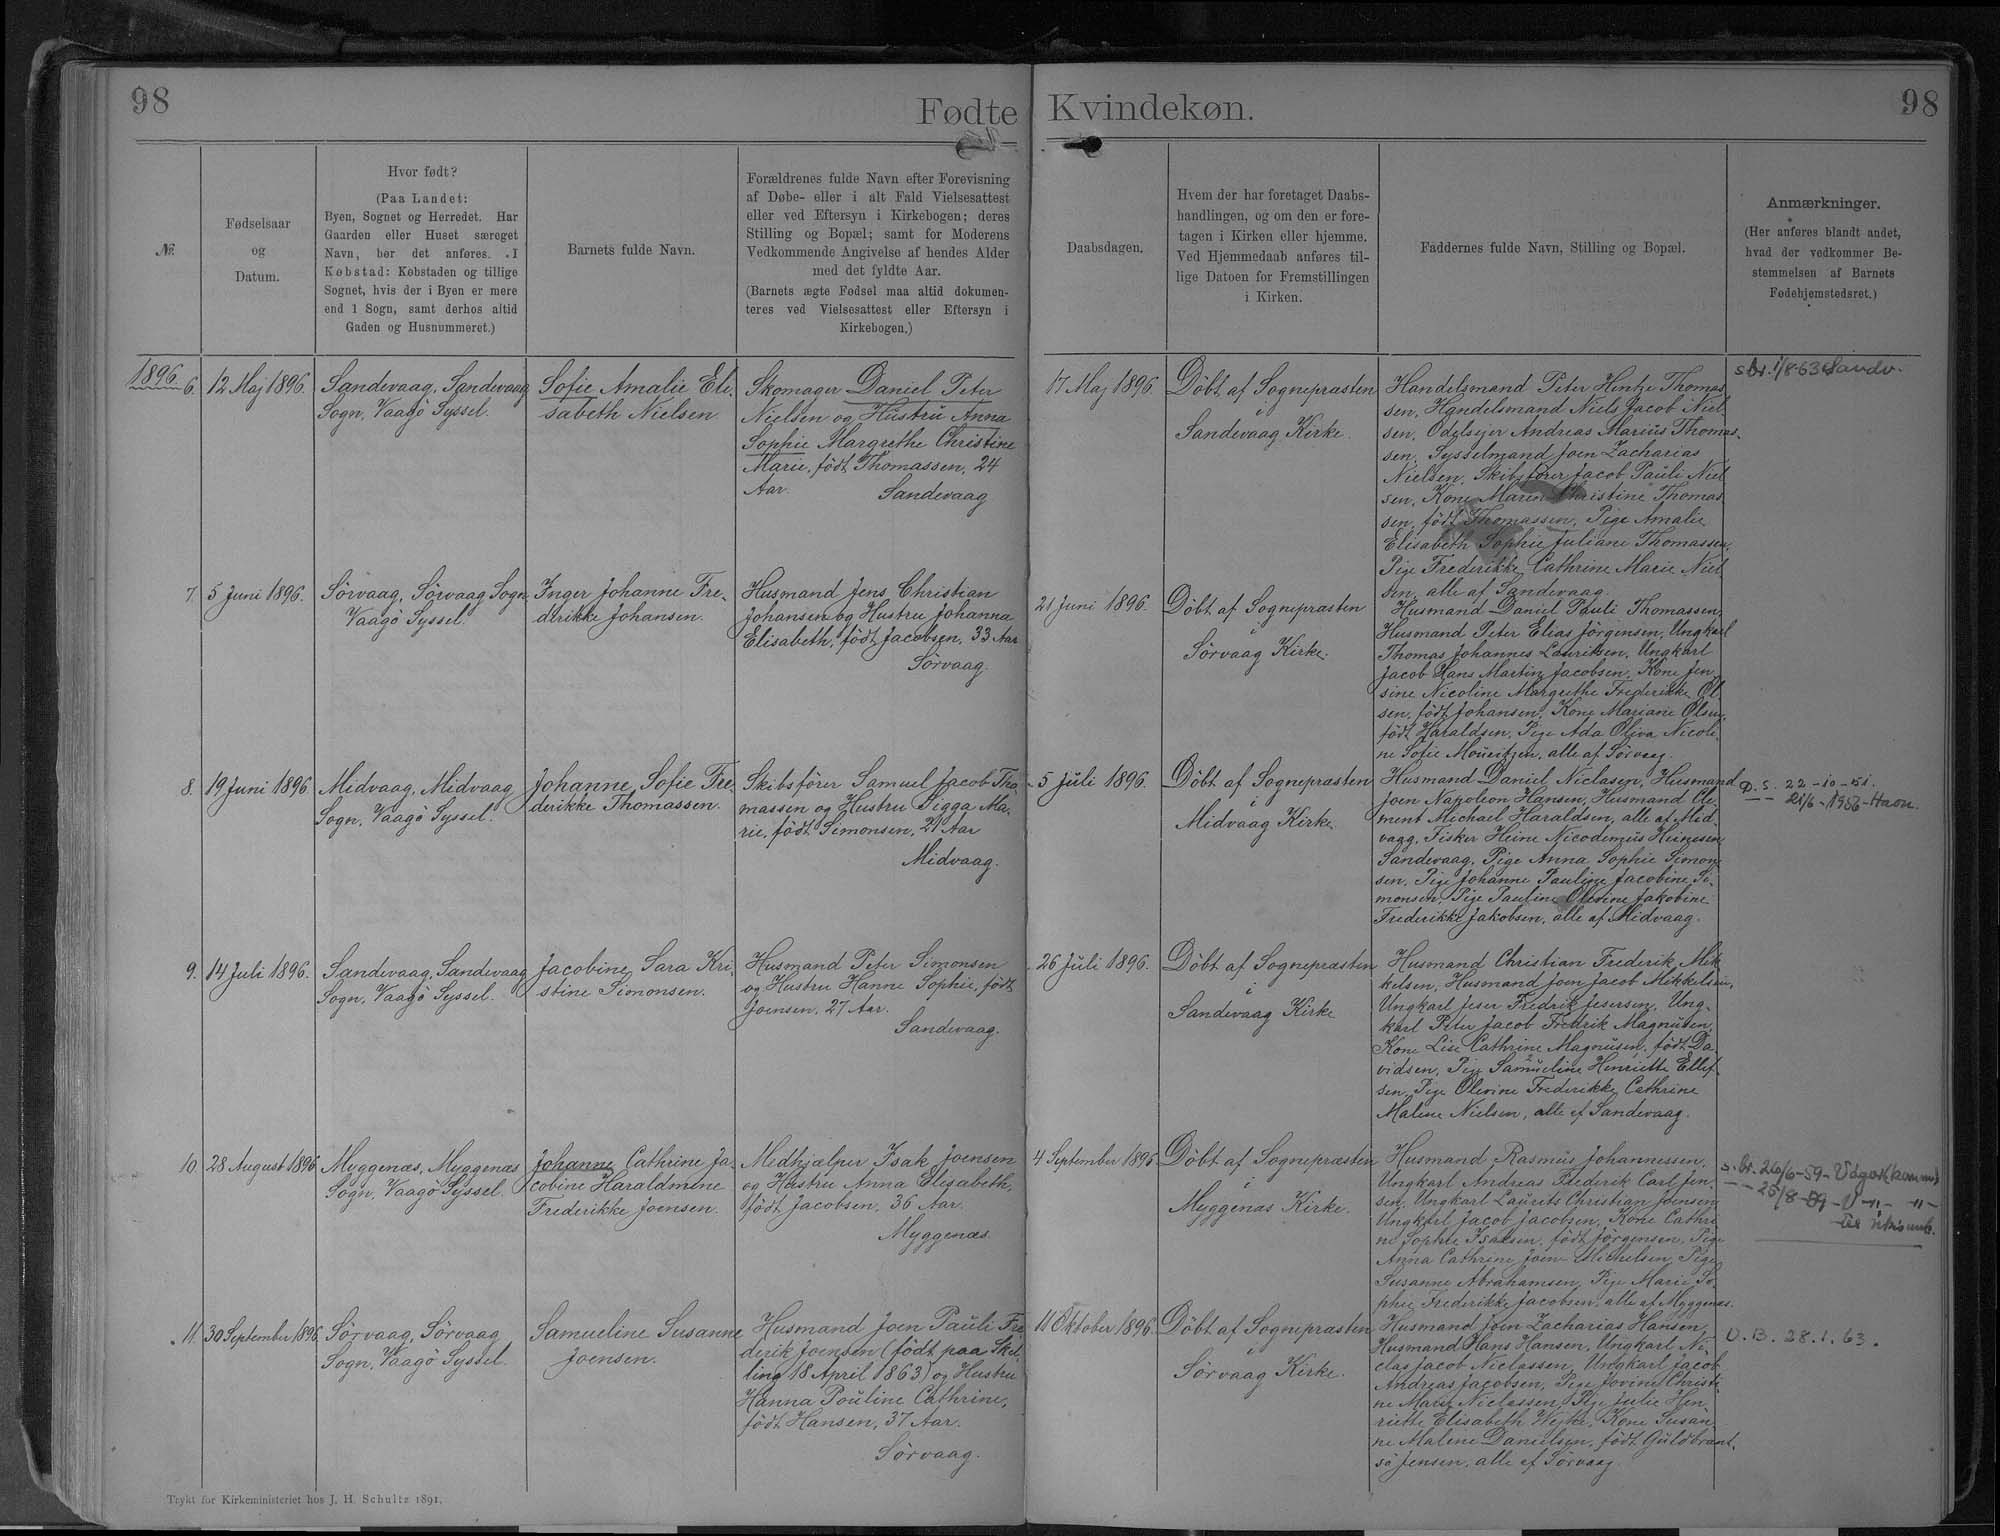 98
Fødte
№.
Fødselsaar
og
Datum.
Hvor født?
(Paa Landet:
Byen, Sognet og Herredet. Har
Gaarden eller Huset særeget
Navn, bør det anføres. I
Købstad: Købstaden og tillige
Sognet, hvis der i Byen er mere
end 1 Sogn, samt derhos altid
Gaden og Husnummeret.)
Barnets fulde Navn.
Forældrenes fulde Navn efter Forevisning
af Døbe- eller i alt Fald Vielsesattest
eller ved Eftersyn i Kirkebogen; deres
Stilling og Bopæl; samt for Moderens
Vedkommende Angivelse af hendes Alder
med det fyldte Aar.
(Barnets ægte Fødsel maa altid dokumen-
teres ved Vielsesattest eller Eftersyn i
Kirkebogen.)
1896. 6.
12 Maj 1896.
Sandevaag, Sandevaag
Sogn, Vaagö Syssel.
Sofie Amalie Eli-
sabeth Nielsen
Skomager Daniel Peter
Nielsen og Hustru Anna
Sophie Margrethe Christine
Marie, født Thomassen, 24
Aar.
Sandevaag
7.
5 Juni 1896.
Sörvaag, Sörvaag Sogn,
Vaagö Syssel.
Inger Johanne Fre-
derikke Johansen.
Husmand Jens Christian
Johansen og Hustru Johanna
Elisabeth, født Jacobsen, 33 Aar
Sörvaag.
8.
19 Juni 1896
Midvaag, Midvaag
Sogn, Vaagö Syssel.
Johanne Sofie Fre-
derikke Thomassen.
Skibsfører Samuel Jacob Tho-
massen og Hustru Sigga Ma-
rie, født Simonsen, 21 Aar
Midvaag.
9.
14 Juli 1896.
Sandevaag, Sandevaag
Sogn, Vaagö Syssel.
Jacobine Sara Kri-
stine Simonsen.
Husmand Peter Simonsen
og Hustru Hanne Sophie, født
Joensen, 27 Aar.
Sandevaag.
10
28 August 1896
Myggenæs, Myggenæs
Sogn, Vaagö Syssel
Johanne Cathrine Ja-
cobine Haraldmine
Frederikke Joensen.
Medhjælper Isak Joensen
og Hustru Anna Elisabeth,
født Jacobsen, 36 Aar.
Myggenæs
11.
30 September 1896.
Sörvaag, Sörvaag
Sogn, Vaagö Syssel.
Samueline Susanne
Joensen.
Husmand Joen Pauli Fre
derik Joensen (født paa Skel-
ling 18 April 1863) og Hustru
Hanna Pouline Cathrine,
født Hansen, 37 Aar.
Sörvaag.
Trykt for Kirkeministeriet hos J. H. Schultz 1891.
Kvindekøn.
98
Daabsdagen.
Hvem der har foretaget Daabs-
handlingen, og om den er fore-
tagen i Kirken eller hjemme.
Ved Hjemmedaab anføres til-
lige Datoen for Fremstillingen
i Kirken.
Faddernes fulde Navn, Stilling og Bopæl.
Anmærkninger.
(Her anføres blandt andet,
hvad der vedkommer Be-
stemmelsen af Barnets
Fødehjemstedsret.)
17 Maj 1896.
Döbt af Sognepræsten
i
Sandevaag Kirke.
Handelsmand Peter Hentze Thomas
sen, Handelsmand Niels Jacob Niel
sen, Odelsejer Andreas Marius Thomas-
sen, Sysselmand Joen Zacharias
Nielsen, Skibsfører Jacob Pauli Niel
sen, Kone Maren Christine Thomas
sen, født Thomassen, Pige Amalie
Elisabeth Sophie Juliane Thomassen,
Pige Frederikke Cathrine Marie Niel
sen, alle af Sandevaag.
s.br. 1/8-63 Sandv.
21 Juni 1896.
Döbt af Sognepræsten
i
Sörvaag Kirke.
Husmand Daniel Pauli Thomassen,
Husmand Peter Elias Jörgensen, Ungkarl
Thomas Johannes Lauritsen, Ungkarl
Jacob Hans Martin Jacobsen, Kone Jen-
sine Nicoline Margrethe Frederikke Ol
sen, født Johansen, Kone Mariane Olsen,
født Haraldsen, Pige Ada Oliva Nicoli-
ne Sofie Mouritzen, alle af Sörvaag.
5 Juli 1896.
Döbt af Sognepræsten
i
Midvaag Kirke.
Husmand Daniel Niclasen, Husmand
Joen Napoleon Hansen, Husmand Cle-
ment Michael Haraldsen, alle af Mid
vaag, Fisker Heine Nicodemus Heinesen
Sandevaag, Pige Anna Sophie Simon
sen, Pige Johanne Pauline Jacobine Si-
monsen, Pige Pauline Olevine Jakobine
Frederikke Jakobsen, alle af Midvaag.
D. S. 22-10-51.
21/6-1956-
26 Juli 1896.
Döbt af Sognepræsten
i
Sandevaag Kirke
Husmand Christian Frederik Mik
kelsen, Husmand Joen Jacob Mikkelsen,
Ungkarl Jeser Fredrik Jesersen, Ung-
karl Peter Jacob Fredrik Magnusen,
Kone Lise Cathrine Magnusen, født Da
vidsen, Pige Samueline Henriette Ellef-
sen, Pige Olevine Frederikke Cathrine
Malene Nielsen, alle af Sandevaag.
4 September 1896
Döbt af Sognepræsten
i
Myggenæs Kirke.
Husmand Rasmus Johannessen,
Ungkarl Andreas Frederik Carl Jen-
sen, Ungkarl Laurits Christian Joensen,
Ungkarl Jacob Jacobsen, Kone Cathri
ne Sophie Isaksen, født Jörgensen, Pige
Anna Cathrine Joen-Michelsen, Pige
Susanne Abrahamsen, Pige Marie So-
phie Frederikke Jacobsen, alle af Myggenæs.
s. br. 26/6-59-
25/8-59-
11 Oktober 1896.
Döbt af Sognepræsten
i
Sörvaag Kirke.
Husmand Joen Zacharias Hansen,
Husmand Hans Hansen, Ungkarl Ni-
clas Jacob Niclassen, Ungkarl Jacob
Andreas Jacobsen, Pige Jovine Christi-
ne Marie Niclassen, Pige Julie Hen
riette Elisabeth Weihe, Kone Susan
ne Malene Danielsen, født Guldbrant-
sö Jensen, alle af Sörvaag
U. B. 28.1.63.